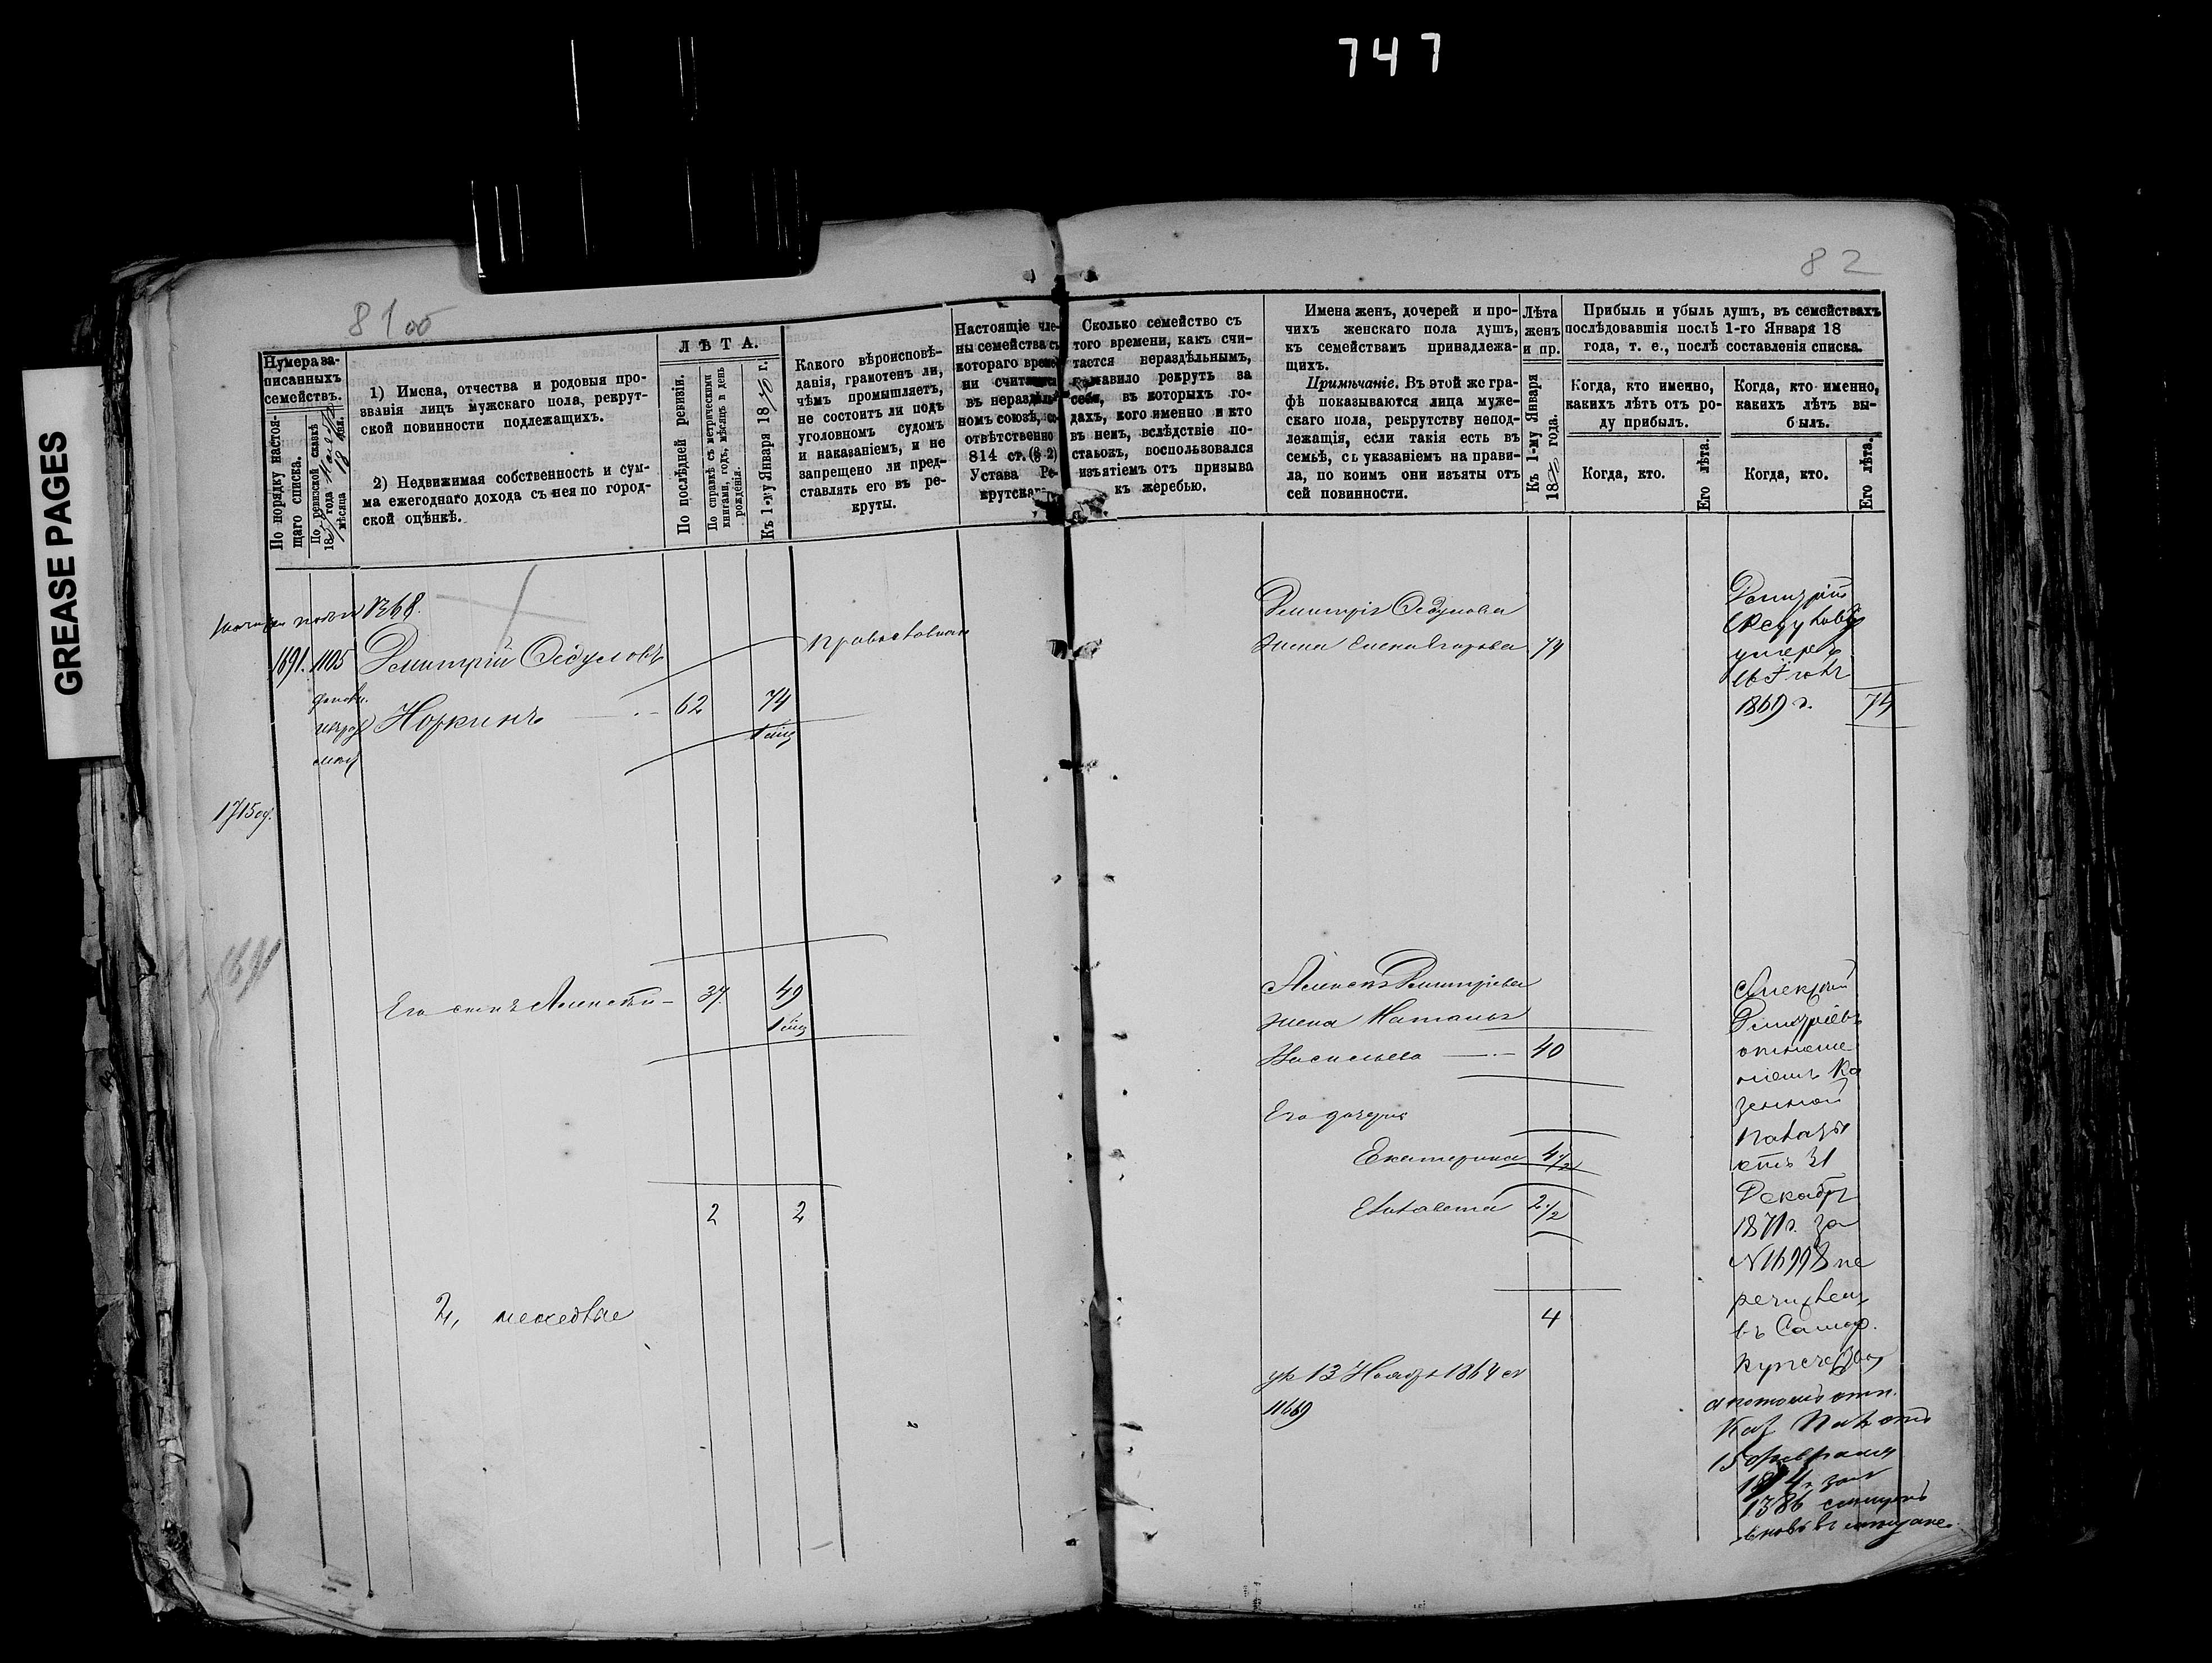 747
GREASE PAGES
81 об
82
Нумера за-
писанныхъ
семействъ.
По порядку настоя-
щаго списка.
По ревизской сказкѣ
18 года
мѣсяца 18 дня.
1) Имена, отчества и родовыя про-
званія лицъ мужскаго пола, рекрут-
ской повинности подлежащихъ.
2) Недвижимая собственность и сум-
ма ежегоднаго дохода съ нея по город-
ской оцѣнкѣ.
ЛѢТА.
По послѣдней ревизіи.
По справкѣ съ метрическими
книгами, годъ, мѣсяцъ и день
рожденія.
Къ 1-му Января 1870 г.
Какого вѣроисповѣ-
данія, грамотенъ ли,
чѣмъ промышляетъ,
не состоитъ ли подъ
уголовномъ судомъ
и наказаніемъ, и не
запрещено ли пред-
ставлять его въ ре-
круты.
Настоящіе чле-
ны семейства съ
котораго време-
ни считается
въ нераздѣль-
номъ союзѣ, со-
отвѣтственно
814 ст. (§ 2)
Устава Ре-
крутскаго
Сколько семейство съ
того времени, какъ счи-
тается нераздѣльнымъ,
поставило рекрутъ за
себя, въ которыхъ го-
дахъ, кого именно и кто
въ немъ, вслѣдствіе по-
ставокъ, воспользовался
изъятіемъ отъ призыва
къ жеребью.
Имена женъ, дочерей и про-
чихъ женскаго пола душъ,
къ семействамъ принадлежа-
щихъ.
Примѣчаніе. Въ этой же гра-
фѣ показываются лица муже-
скаго пола, рекрутству непод-
лежащія, если такія есть въ
семьѣ, съ указаніемъ на прави-
ла, по коимъ они изъяты отъ
сей повинности.
Лѣта
женъ
и пр.
Къ 1-му Января
1870 года.
Прибыль и убыль душъ, въ семействахъ
послѣдовавшія послѣ 1-го Января 18
года, т. е., послѣ составленія списка.
Когда, кто именно,
какихъ лѣтъ отъ ро-
ду прибылъ.
Когда, кто.
Его лѣта.
Когда, кто именно,
какихъ лѣтъ вы-
былъ.
Когда, кто.
Его лѣта.
1368.
1691. 1105 Дмитрій Ѳедуловъ
Норкинъ 62 74
православнаго
1715
Его сынъ Алексѣй 37 49
2 2
2,
Дмитрія Ѳедулова
жена Елена Егорова 74
Алексѣя Дмитріева
жена Наталья
Васильева 40
Его дочери
Екатерина 4 1/2
Елизавета 2 1/2
4
ук 13 Ноября 1864
11669
Дмитрій
Ѳедуловъ
умеръ
16 Іюня
1869 г. 74
Алексѣй
Дмитріевъ
отноше
ніемъ Ка
зенной
Палаты
отъ 31
Декабря
1871 г. за
N 16998 пе
речисленъ
въ Самар.
купечество
а потомъ отн.
Каз Пал отъ
15 Февраля
1874 г. за N
1386
вновь въ мѣщане.